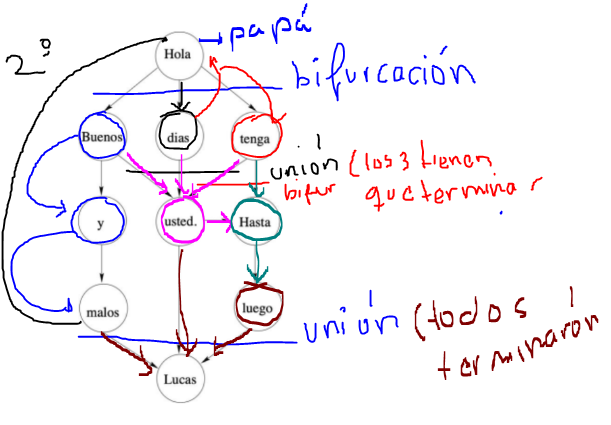 2º
Hola
papá
bifurcación
Buenos
dias
tenga
unión (los 3 tienen
bifur
que terminar
y
usted.
Hasta
malos
luego
unión (todos
terminarón
Lucas